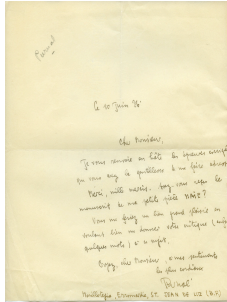 ce 10 Juin 76
Cher Monsieur,
Je vous renvoie en hâte les épreuves
que vous avez la gentillesse de me faire
Merci, mille mercis. avez vous reçu le
manuscrit de ma petite pièce
Vous me feriez un bien grand plaisir en
voulant bien me donner votre critique
quelques mots) à ce sujet.
Croyez, cher Monsieur, à mes sentiments
les plus cordiaux
ST. JEAN DE LUZ (B.P.)